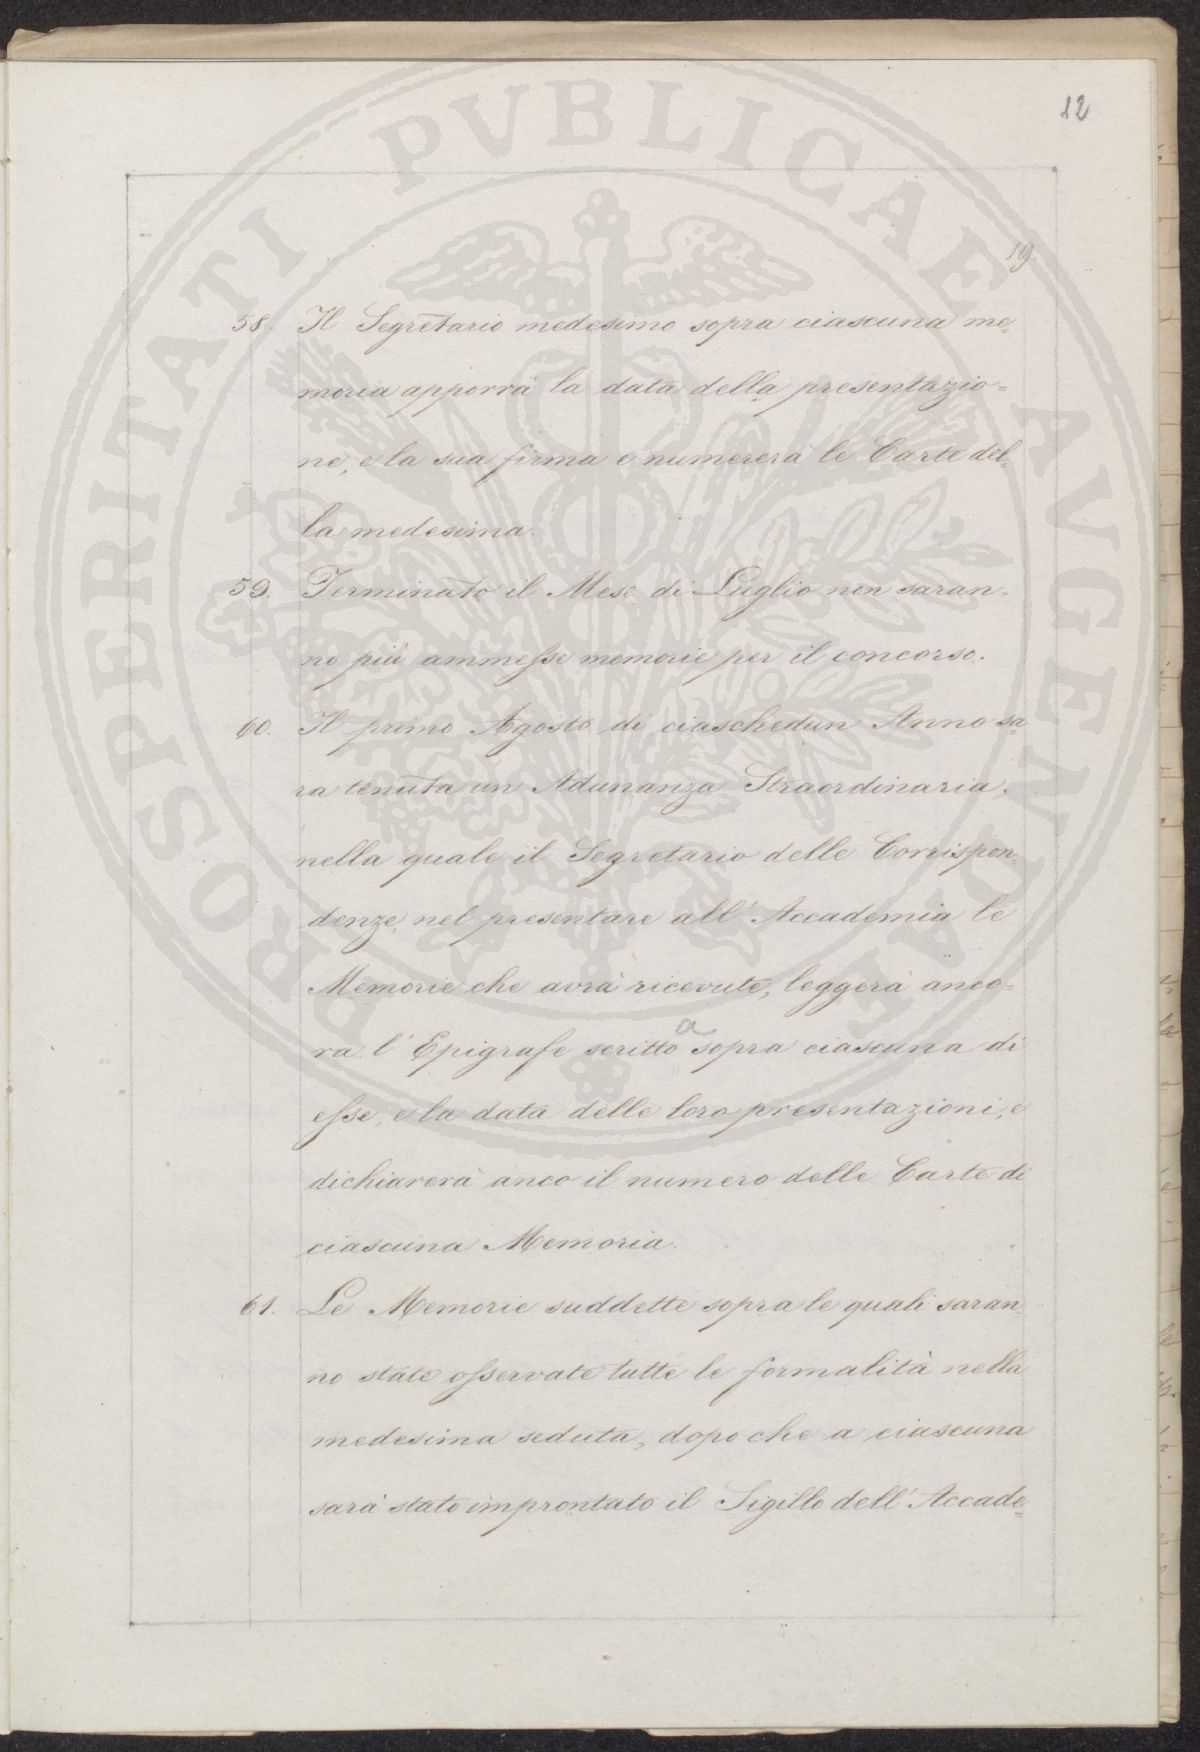 12
19.
58. Il Segretario medesimo sopra ciascuna me=
moria apporrà la data della presentazio=
ne, e la sua firma e numererà le Carte del=
la medesima.
59. Terminato il Mese di Luglio non saran=
no più ammesse memorie per il concorso.
60. Il primo Agosto di ciaschedun Anno sa=
rà tenuta un Adunanza Straordinaria,
nella quale il Segretario delle Corrispon=
denze, nel presentare all'Accademia le
Memorie che avrà ricevute, leggerà anco=
ra l'Epigrafe scritto a sopra ciascuna di
esse, e la data delle loro presentazioni, e
dichiarerà anco il numero delle Carte di
ciascuna Memoria.
61. Le Memorie suddette sopra le quali saran=
no state osservate tutte le formalità nella
medesima seduta, dopo che a ciascuna
sarà stato improntato il Sigillo dell'Accade=
PROSPERITATI PVBLICAE AVGENDAE